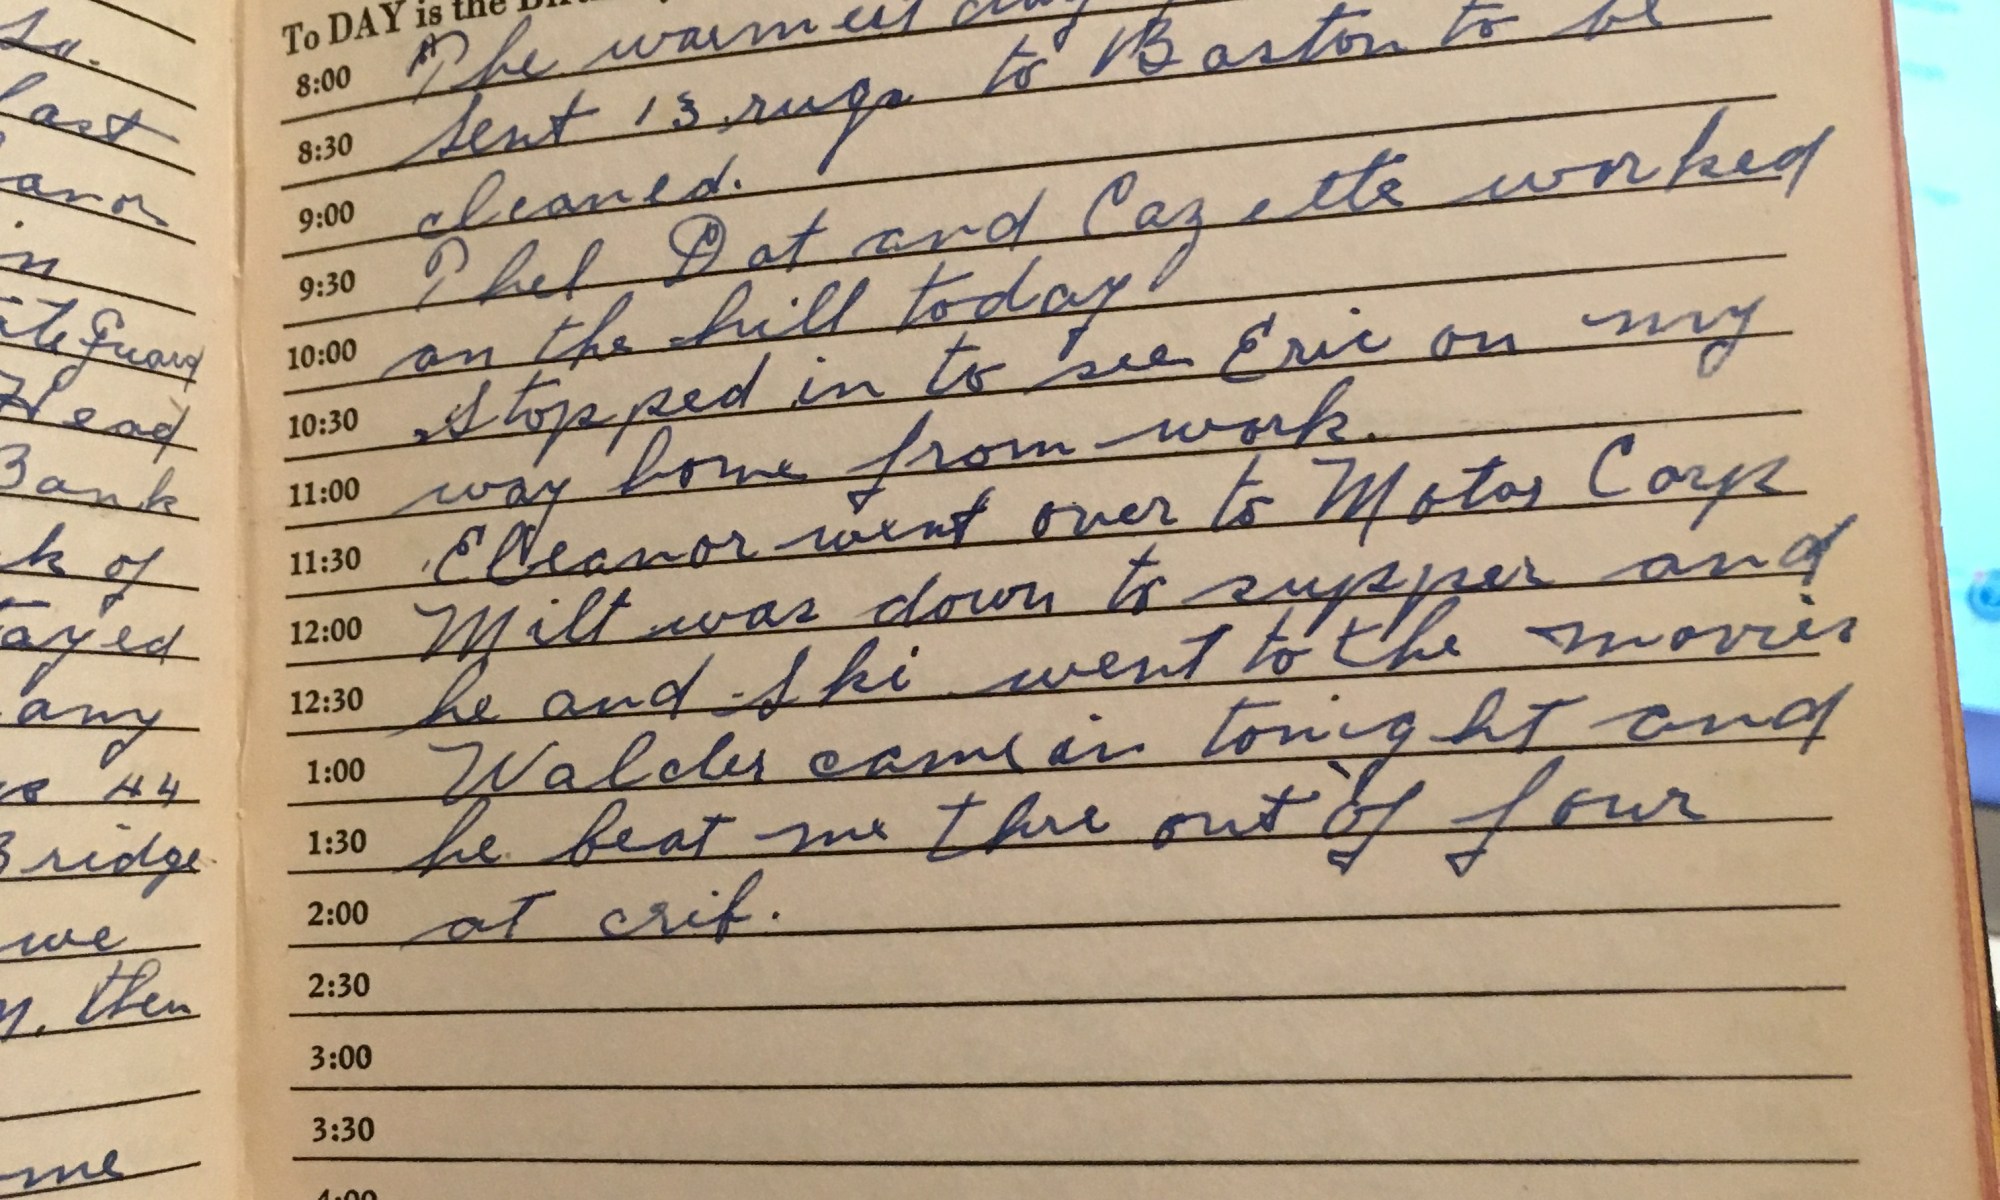 so.
last
anor
in
ate Guard
Head
Bank
k of
tayed
any
44
Bridge
we
then
me
To DAY is the
8:00 The warmest day
8:30 sent 13 rugs to Boston to be
9:00 cleaned.
9:30 Phel Dot and Cazette worked
10:00 on the hill today
10:30 Stopped in to see Eric on my
11:00 way home from work.
11:30 Eleanor went over to Motor Corps
12:00 Milt was down to supper and
12:30 he and Ski went to the movies
1:00 Walder came in tonight and
1:30 he beat me thre out of four
2:00 at crib.
2:30
3:00
3:30
4:00